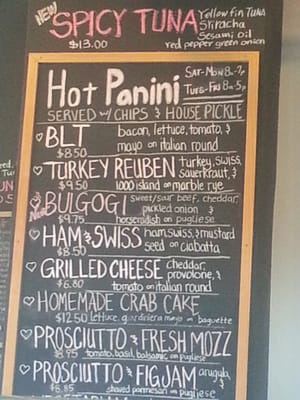 NEW SPICY TUNA Yellow fin TUNA
Sriracha
Sesame oil
$13.00 red pepper green onion
Hot Panini SAT-MON 8a-7p
TUES-FRI 8a-5p
SERVED W/ CHIPS & HOUSE PICKLE
BLT bacon, lettuce, tomato, &
$8.50 mayo on italian round
TURKEY REUBEN turkey, swiss,
sauerkraut, &
$9.50 1000 island on marble rye
New BULGOGI sweet/sour beef, cheddar,
pickled onion &
$9.75 horseradish on pugliese
HAM & SWISS ham, swiss, & mustard
$8.50 seed on ciabatta
GRILLED CHEESE cheddar,
provolone, &
$6.80 tomato on italian round
HOMEMADE CRAB CAKE
$12.50 lettuce, giardiniera mayo on baguette
PROSCIUTTO & FRESH MOZZ
$8.95 tomato, basil, balsamic on pugliese
PROSCIUTTO & FIG JAM arugula, &
$8.85 shaved parmesan on pugliese